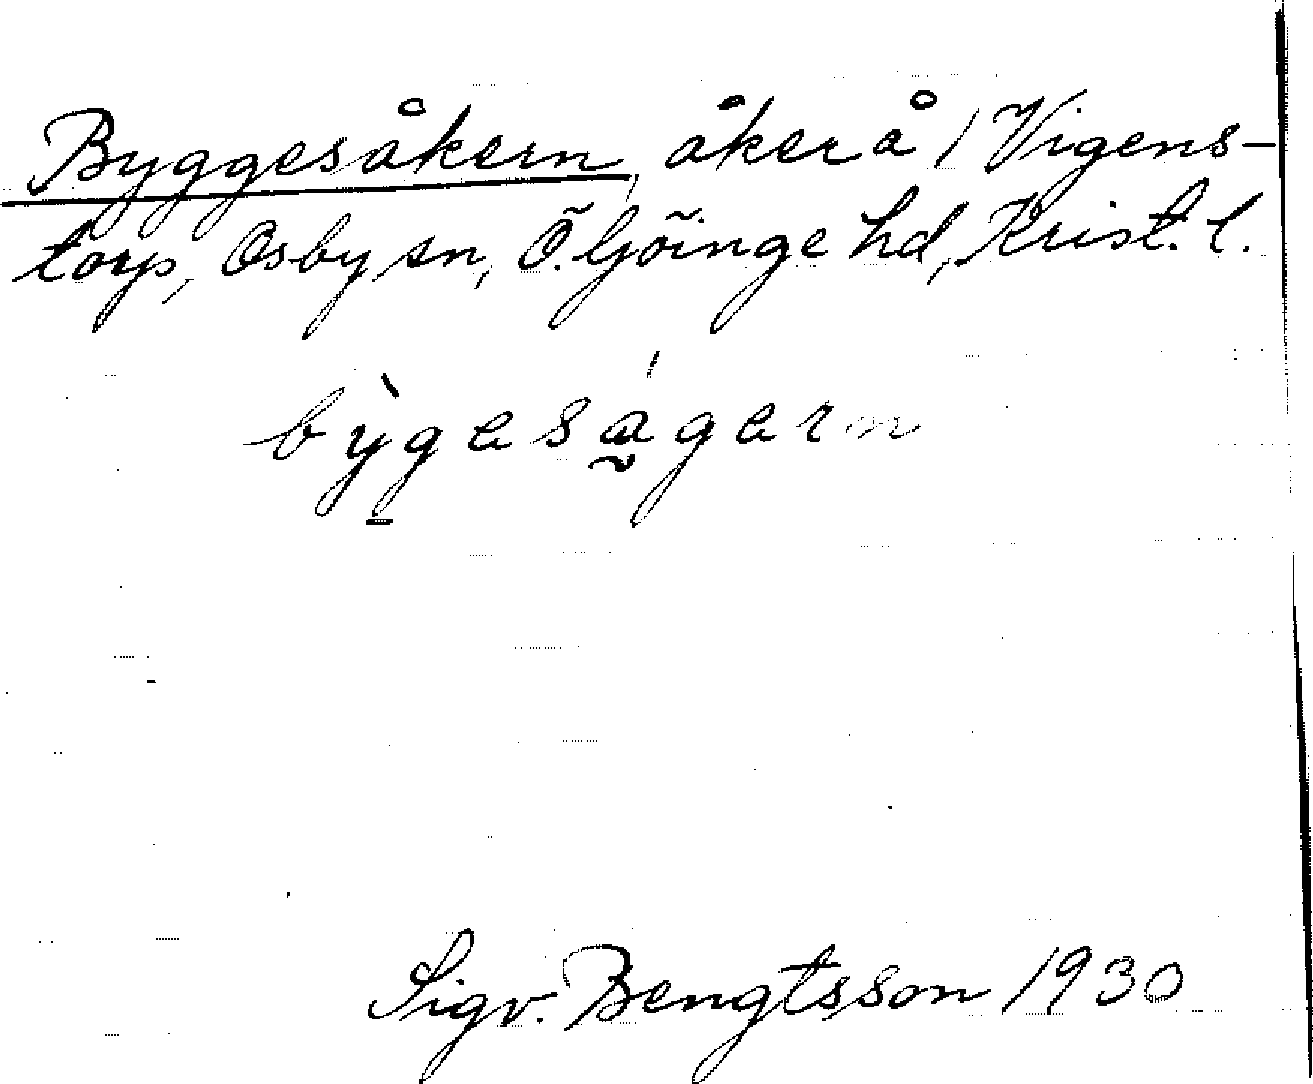 Byggesåkern, åker å 1 Vigens-
torp, Osby sn, Ö. Göinge hd, Krist. l.
bỳgesa̰gern
Sigv. Bengtsson 1930